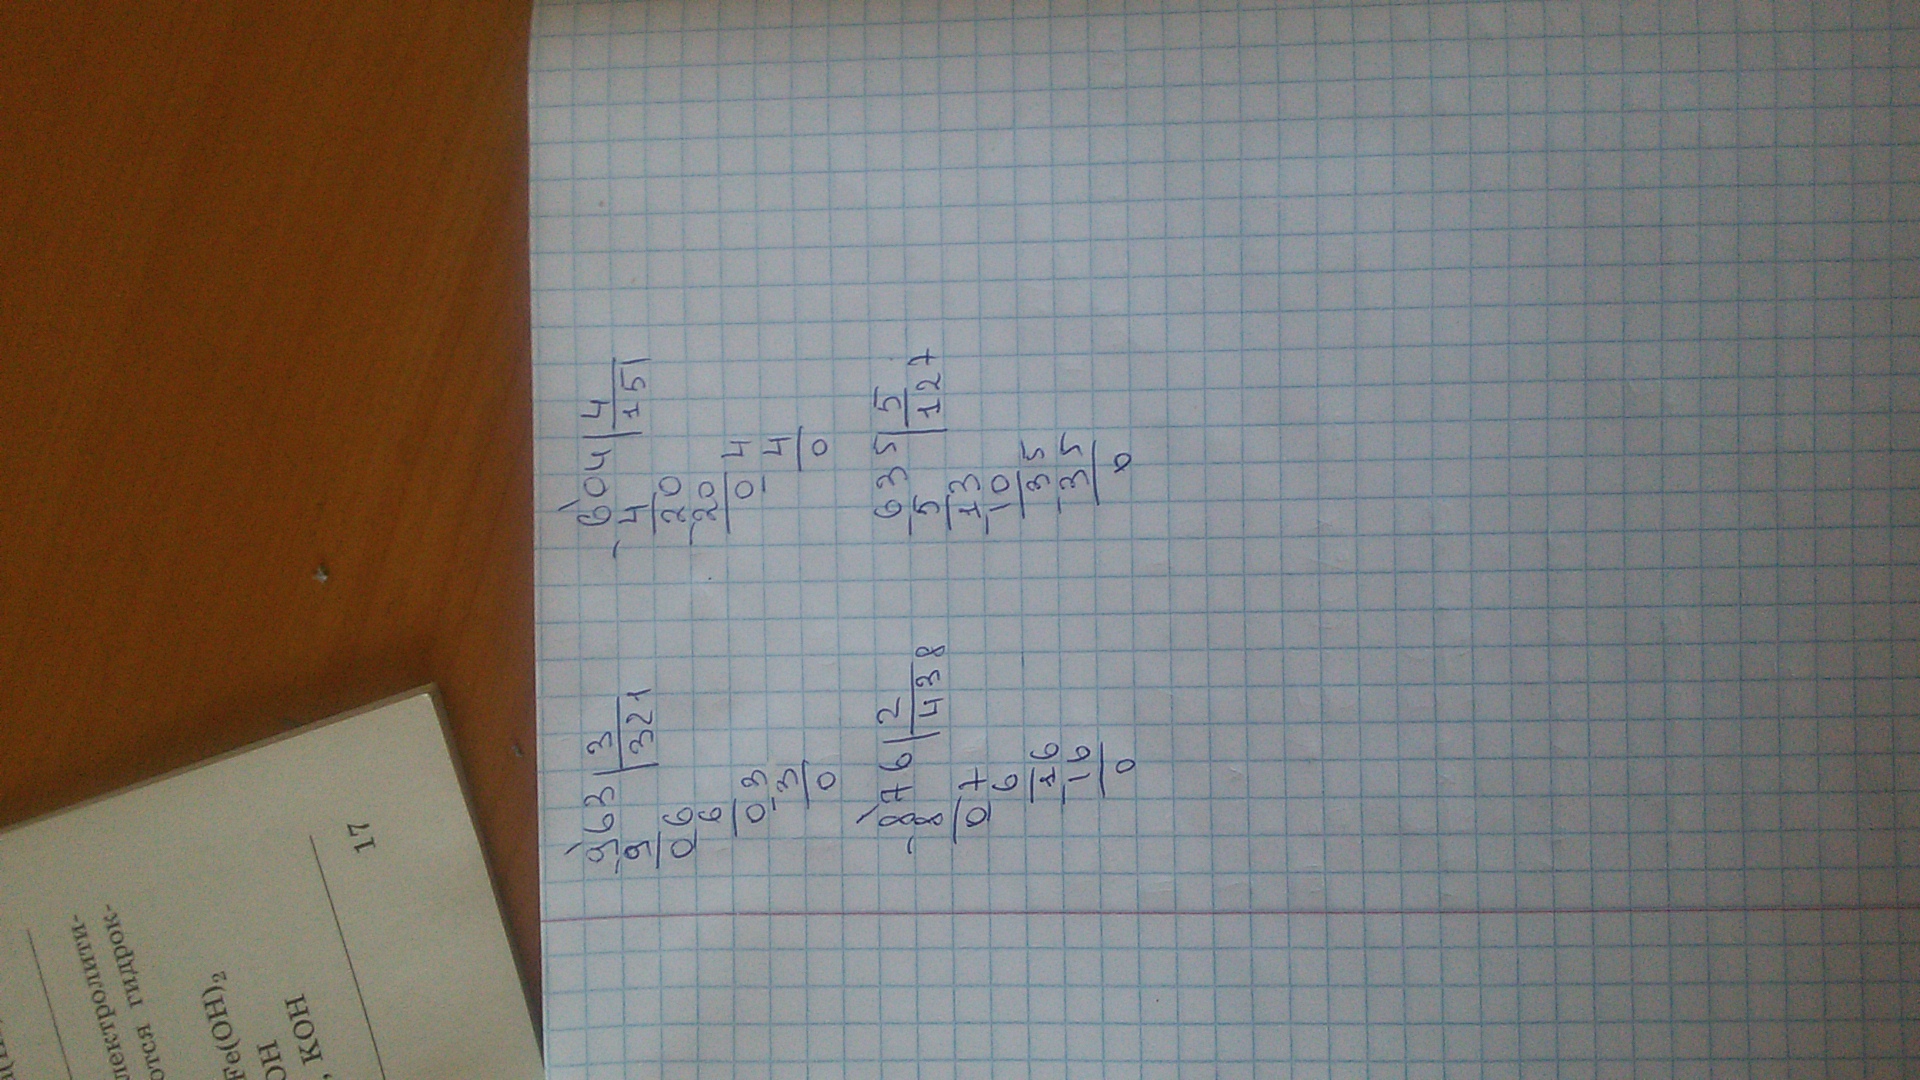 -963|3
9 321
06
6
03
-3
0
-604|4
4 151
20
-20
04
-4
0
-876|2
8 438
07
6
16
-16
0
-635|5
5 127
13
-10
35
-35
0
лектролити-
ются гидрок-
Fe(OH)₂
OH
, KOH
17